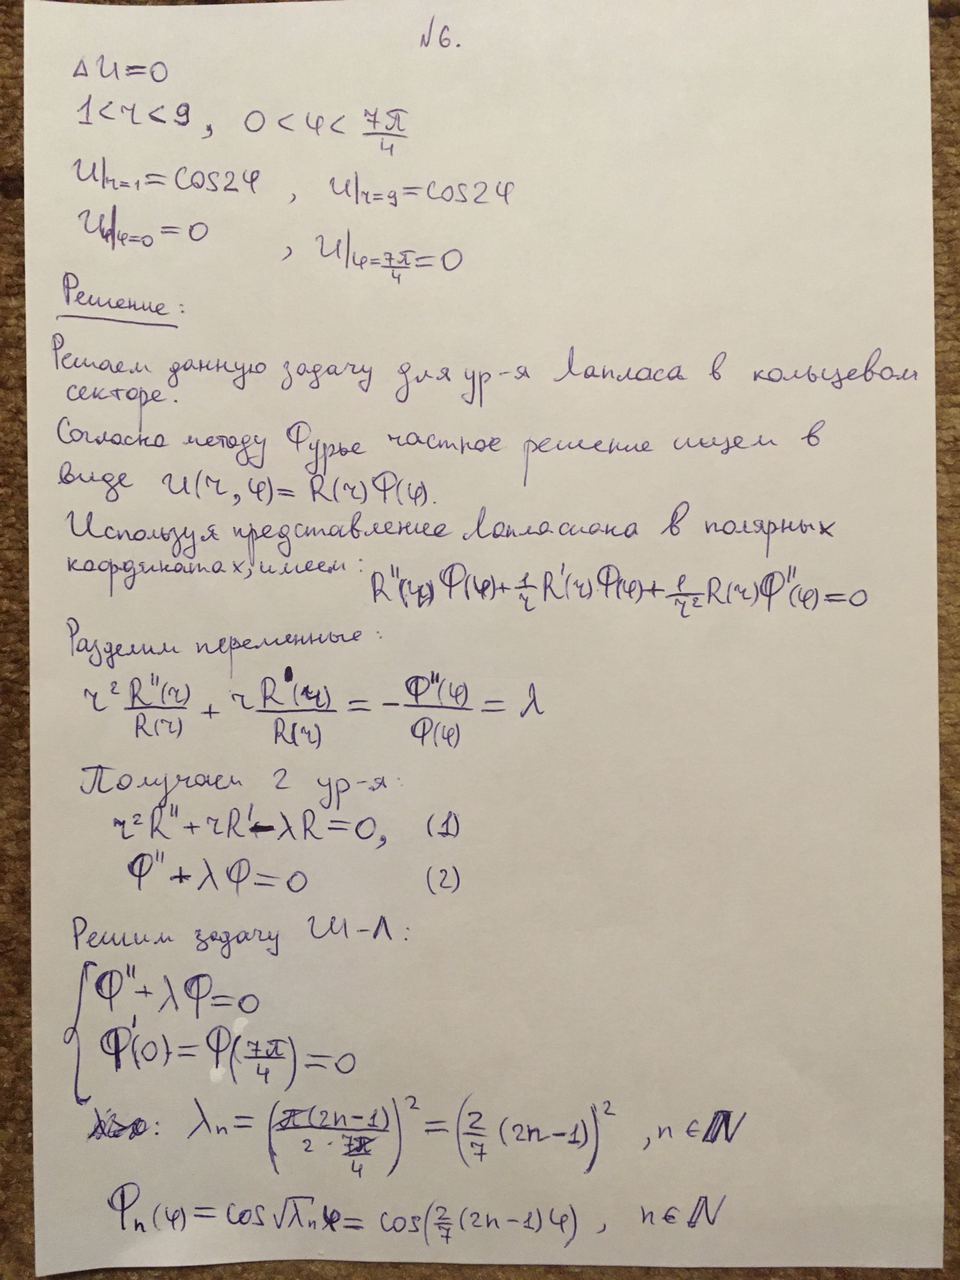 №6.
Δu=0
1<r<9, 0<φ<7π/4
u|r=1=cos2φ, u|r=9=cos2φ
uφ|φ=0=0, u|φ=7π/4=0
Решение:
Решаем данную задачу для ур-я Лапласа в кольцевом
секторе.
Согласно методу Фурье частное решение ищем в
виде u(r,φ)=R(r)Φ(φ).
Используя представление Лапласиана в полярных
координатах, имеем:
R''(r)Φ(φ)+1/r R'(r)Φ(φ)+1/r² R(r)Φ''(φ)=0
Разделим переменные:
r² R''(r)/R(r) + r R'(r)/R(r) = - Φ''(φ)/Φ(φ) = λ
Получаем 2 ур-я:
r²R''+rR'-λR=0, (1)
Φ''+λΦ=0 (2)
Решим задачу Ш-Л:
Φ''+λΦ=0
Φ'(0)=Φ(7π/4)=0
: λn=(π(2n-1)/(2·7π/4))²=(2/7 (2n-1))², n∈N
Φn(φ)=cos√λn φ=cos(2/7(2n-1)φ), n∈N